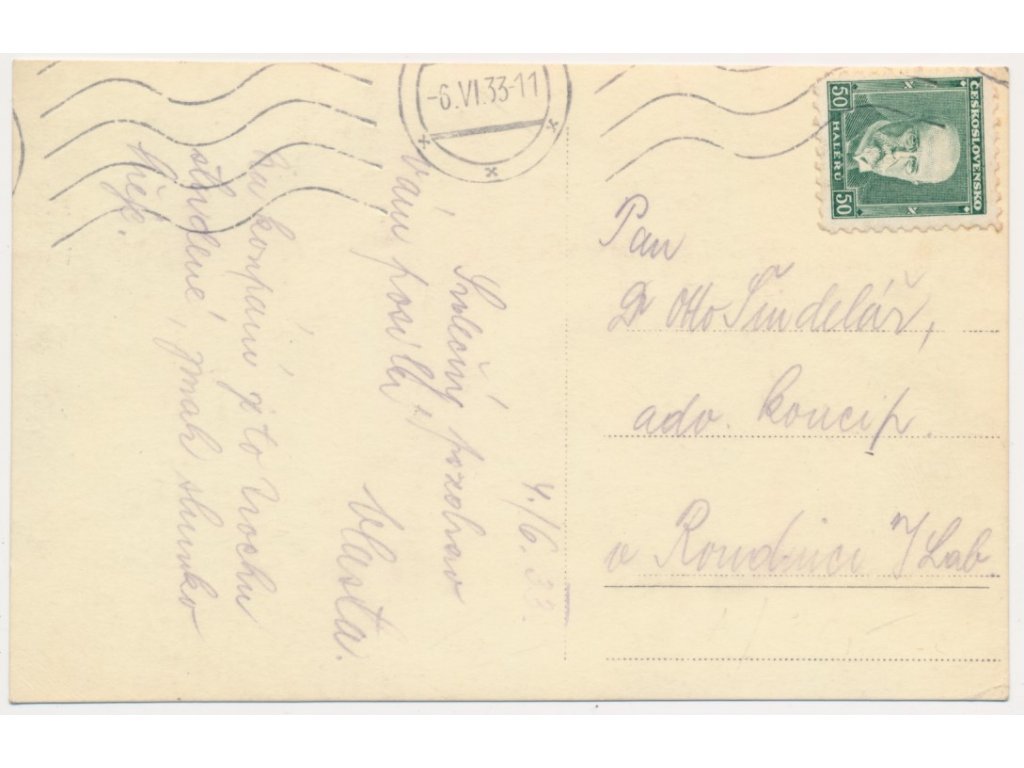 -6.VI.33-11
ČESKOSLOVENSKO
50 HALÉŘŮ 50
4./6. 33.
Srdečný pozdrav
Vám posílá
Vlasta.
Na koupání je to trochu
studené, jinak slunko
hřeje.
Pan
Dr Otto Šindelář,
adv. koncip.
v Roudnici n/Lab.